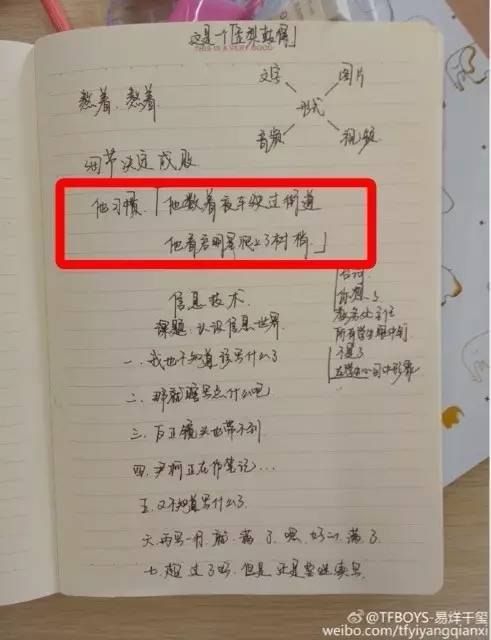 这是一个「玄架教得」
THIS IS A VERY GOOD
文字 图片
形式
音频 视频
熬着,熬着
细节决定成败
他习惯「他数着夜车驶过街道
他看启明星爬上了树梢」
信息技术
课题:认识信息世界
一、我也不知道该写什么了
二、那就瞎写点什么吧
三、反正镜头也带不到
四、尹柯正在作笔记…
五、又不知道写什么了
六、再写一行就满了,嗯,好的,满了
七、超过了呀,但是还是要继续写
台词
你想了
所有学生眼中钉
@TFBOYS-易烊千玺
weibo.com/tfyiyangqianxi